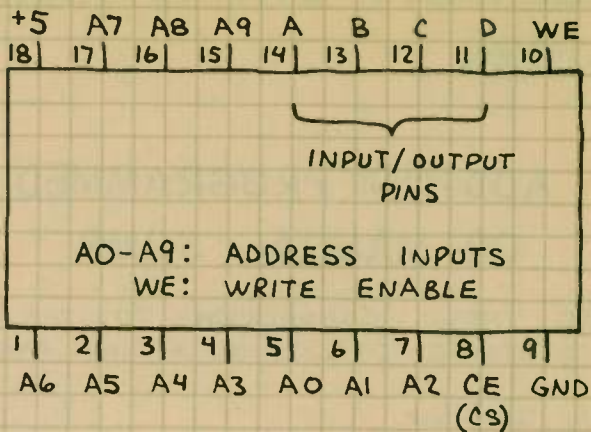 +5 A7 A8 A9 A B C D WE
18 17 16 15 14 13 12 11 10
INPUT/OUTPUT
PINS
A0-A9: ADDRESS INPUTS
WE: WRITE ENABLE
1 2 3 4 5 6 7 8 9
A6 A5 A4 A3 A0 A1 A2 CE GND
(CS)